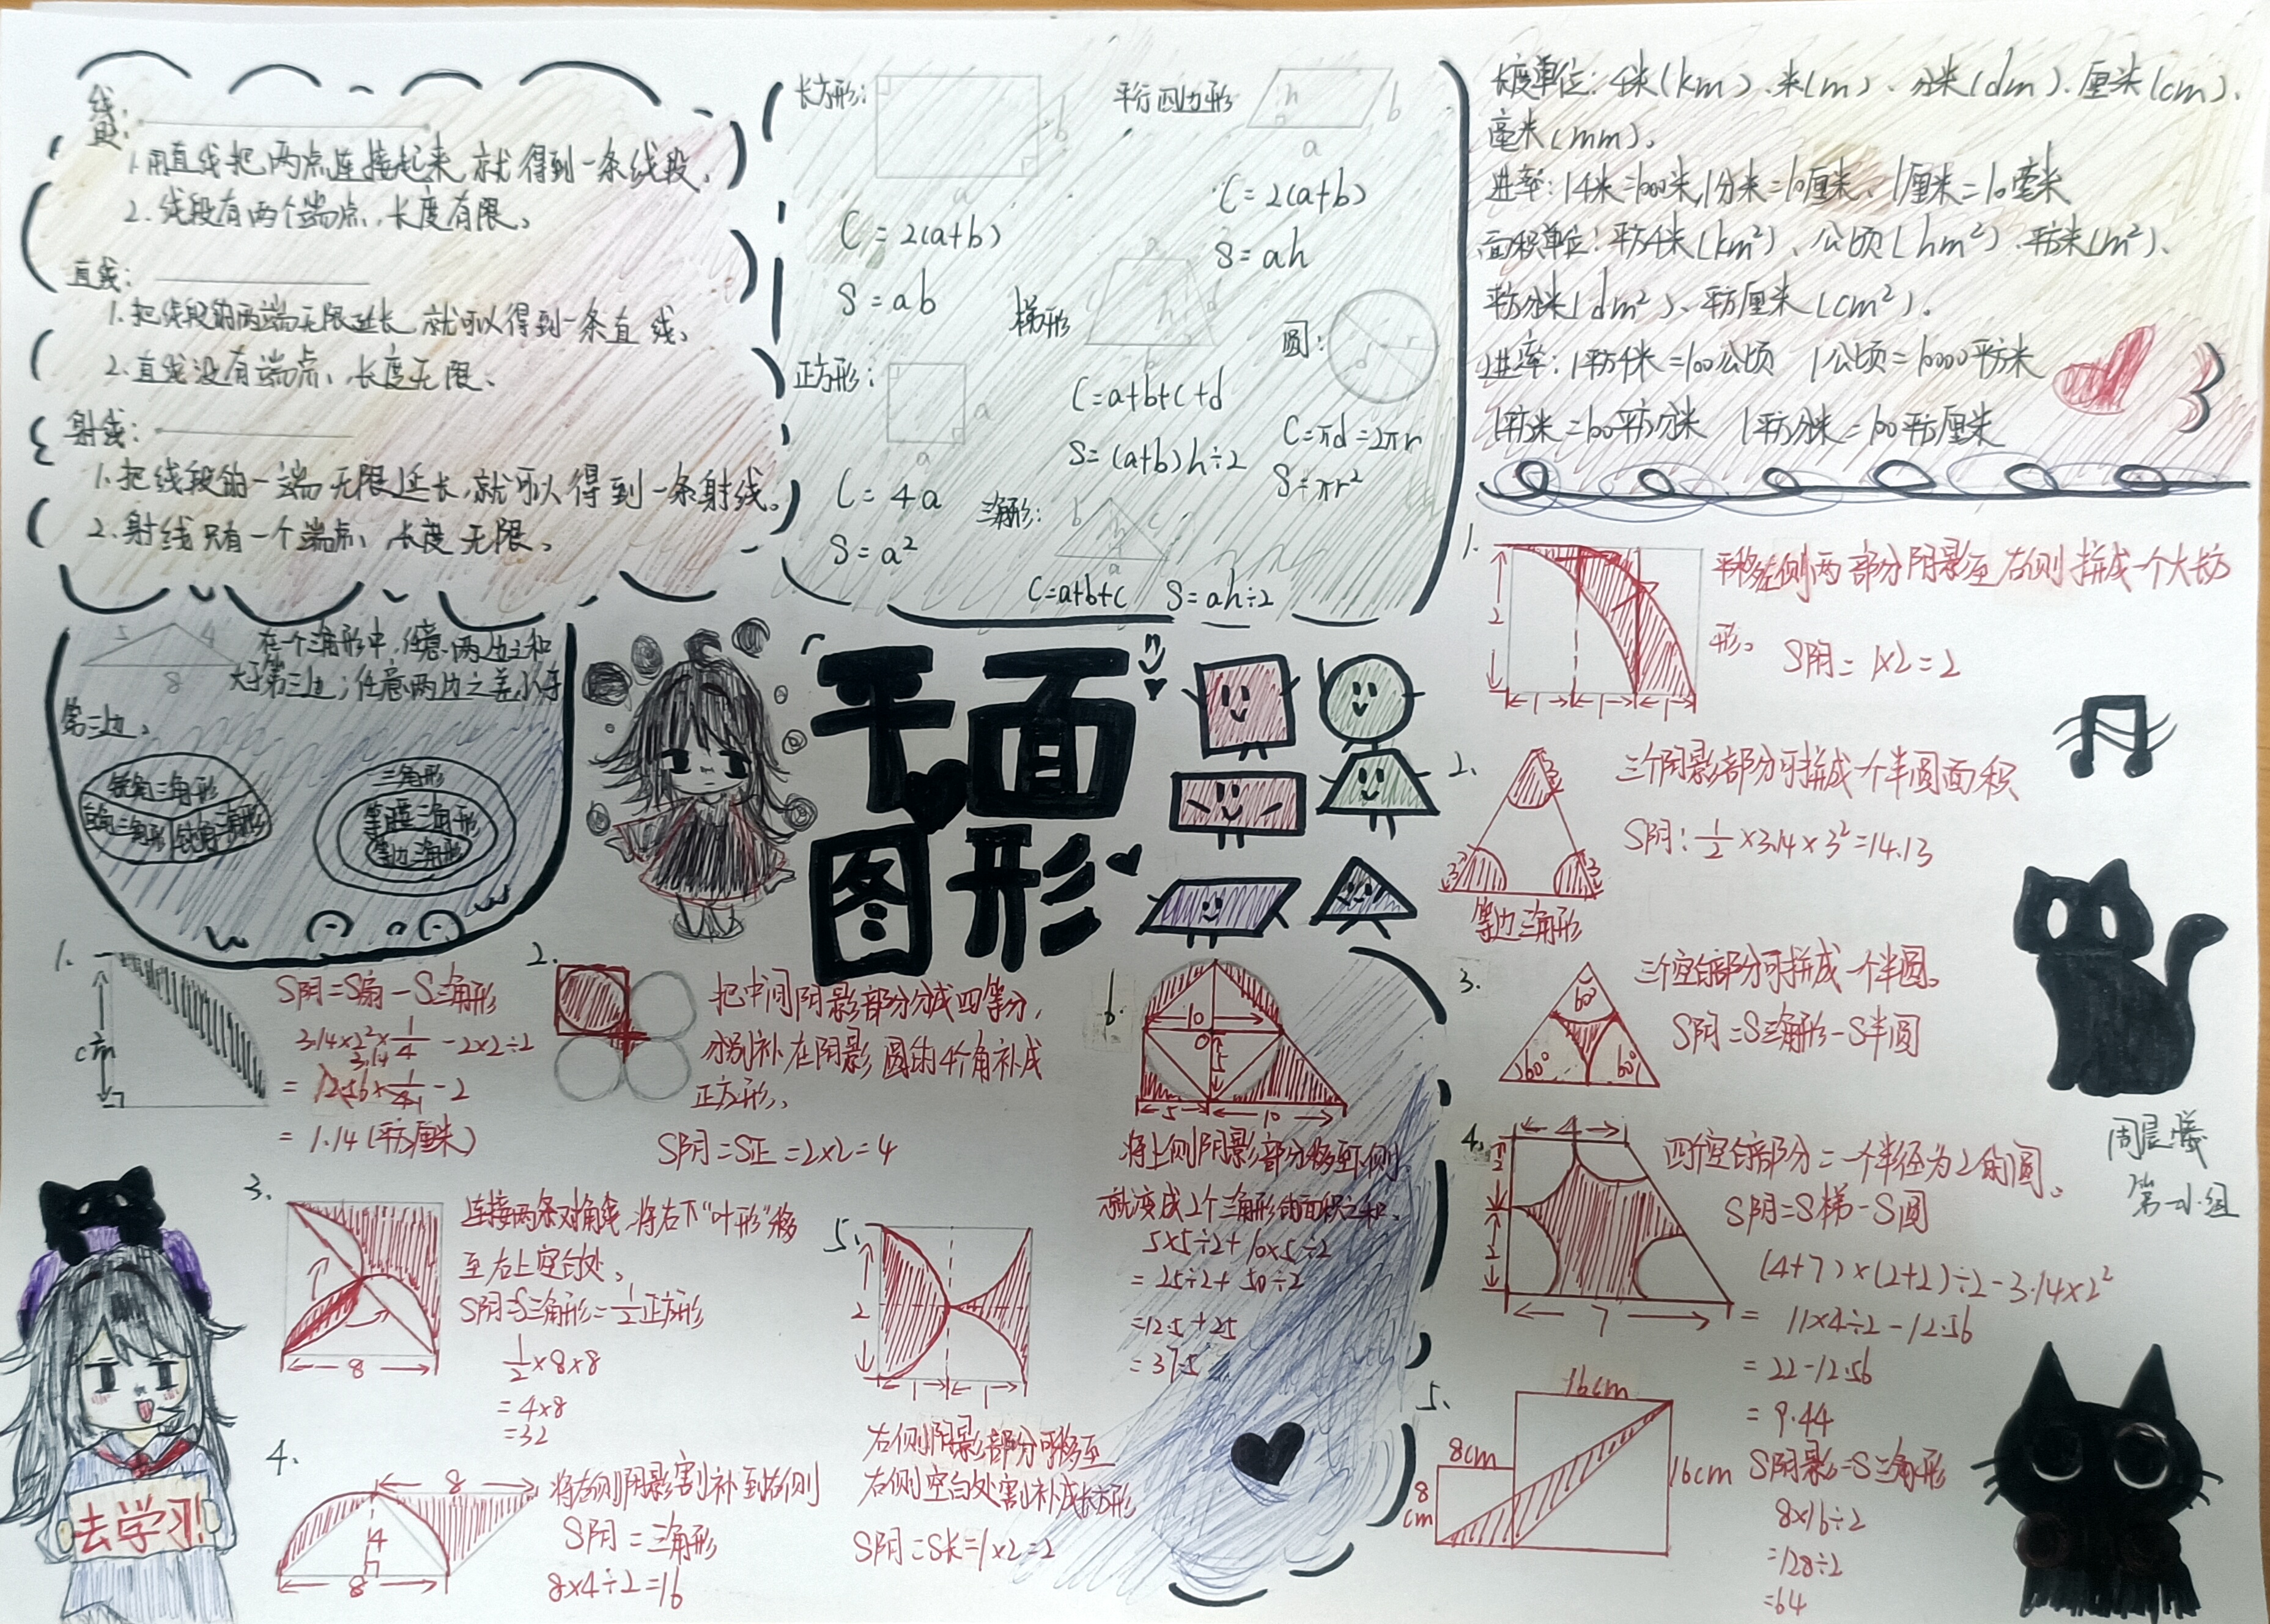 线段:
1.用直线把两点连接起来就得到一条线段。
2.线段有两个端点,长度有限。
直线:
1.把线段的两端无限延长,就可以得到一条直线。
2.直线没有端点、长度无限。
射线:
1.把线段的一端无限延长,就可以得到一条射线。
2.射线只有一个端点、长度无限。
长方形:
b
a
C=2(a+b)
S=ab
正方形:
a
a
C=4a
S=a²
平行四边形
h
b
a
C=2(a+b)
S=ah
梯形
a
c
h
d
b
C=a+b+c+d
S=(a+b)h÷2
圆:
d
r
C=πd=2πr
S=πr²
三角形:
b
h
c
a
C=a+b+c S=ah÷2
长度单位:千米(km)、米(m)、分米(dm)、厘米(cm)、
毫米(mm)。
进率:1千米=1000米,1分米=10厘米、1厘米=10毫米
面积单位:平方千米(km²)、公顷(hm²)、平方米(m²)、
平方分米(dm²)、平方厘米(cm²)。
进率:1平方千米=100公顷 1公顷=10000平方米
1平方米=100平方分米 1平方分米=100平方厘米
5
4
8
在一个三角形中,任意两边之和
大于第三边;任意两边之差小于
第三边。
锐角三角形
直角三角形
钝角三角形
三角形
等腰三角形
等边三角形
平面
图形
1.
2
1
1
1
平移左侧两部分阴影至右侧拼成一个大长方
形。
S阴=1×2=2
2.
3
3
3
等边三角形
三个阴影部分可拼成一个半圆面积
S阴:1/2×3.14×3²=14.13
3.
60°
60°
60°
三个空白部分可拼成一个半圆。
S阴=S三角形-S半圆
4.
4
2
2
7
四个空白部分=一个半径为2的圆。
S阴=S梯-S圆
(4+7)×(2+2)÷2-3.14×2²
=11×4÷2-12.56
=22-12.56
=9.44
5.
16cm
8cm
8
cm
16cm
S阴影=S三角形
8×16÷2
=128÷2
=64
周晨曦
第一小组
1.
cm
S阴=S扇-S三角形
3.14×2²×1/4-2×2÷2
3.14
=12.56×1/4-2
=1.14(平方厘米)
2.
把中间阴影部分分成四等分,
分别补在阴影圆的4个角补成
正方形。
S阴=S正=2×2=4
3.
8
连接两条对角线,将右下"叶形"移
至右上空白处。
S阴=S三角形=1/2正方形
1/2×8×8
=4×8
=32
4.
8
4
8
将右侧阴影割补到右侧
S阴=三角形
8×4÷2=16
5.
2
1
1
右侧阴影部分可移至
右侧空白处割补成长方形
S阴=S长=1×2=2
6.
10
0
5
5
10
将上侧阴影部分移至下侧,
就变成2个三角形的面积之和。
5×5÷2+10×5÷2
=25÷2+50÷2
=12.5+25
=37.5
去学习!